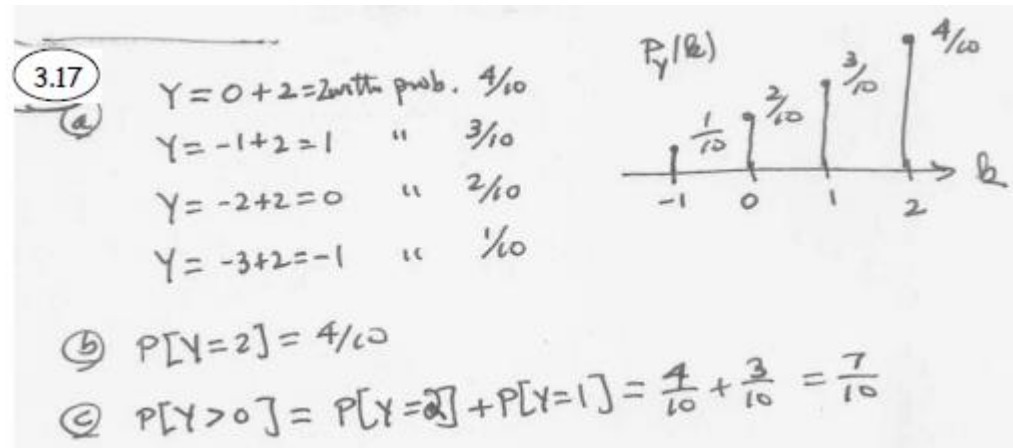 3.17
(a)
Y = 0 + 2 = 2 with prob. 4/10
Y = -1 + 2 = 1 " 3/10
Y = -2 + 2 = 0 " 2/10
Y = -3 + 2 = -1 " 1/10
P_Y(k)
1/10 2/10 3/10 4/10
-1 0 1 2 k
(b) P[Y=2] = 4/10
(c) P[Y>0] = P[Y=2] + P[Y=1] = 4/10 + 3/10 = 7/10